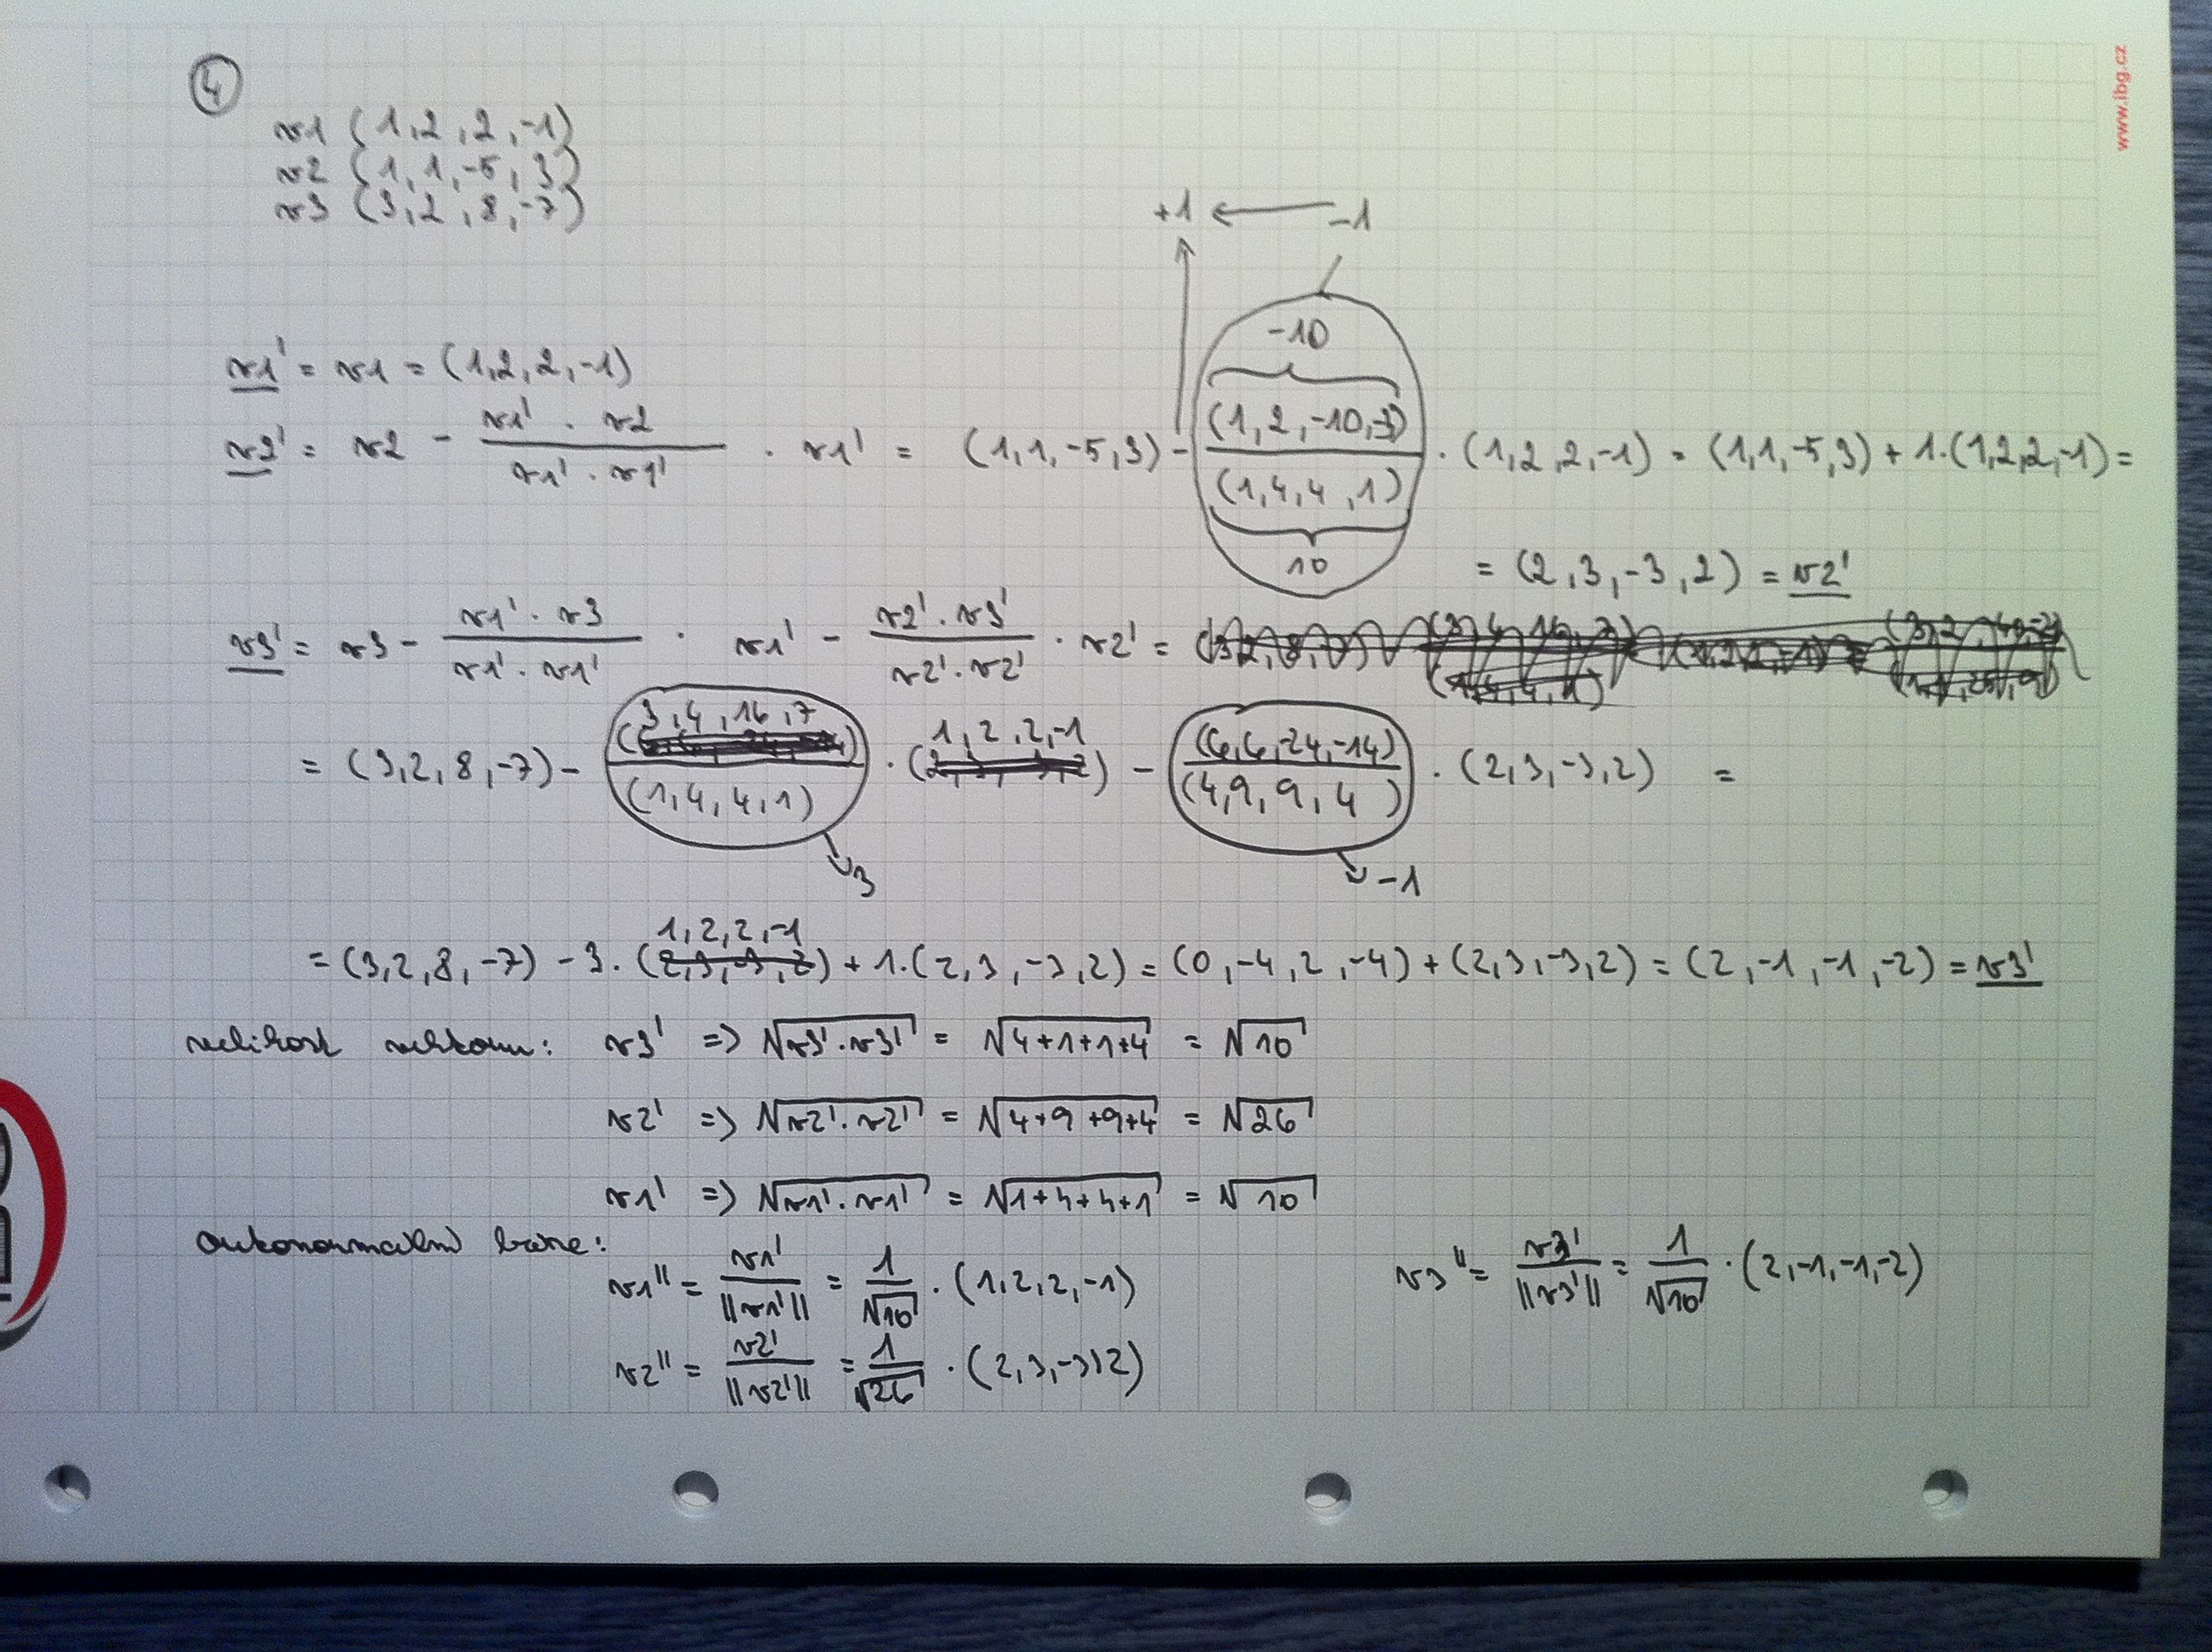 ④
v1 (1,2,2,-1)
v2 (1,1,-5,3)
v3 (3,2,8,-7)
v1' = v1 = (1,2,2,-1)
v2' = v2 - (v1' · v2)/(v1' · v1') · v1' = (1,1,-5,3) - (1,2,-10,-3)/(1,4,4,1) · (1,2,2,-1) = (1,1,-5,3) + 1·(1,2,2,-1) =
-10
10
+1 ← -1
= (2,3,-3,2) = v2'
v3' = v3 - (v1' · v3)/(v1' · v1') · v1' - (v2' · v3)/(v2' · v2') · v2' =
= (3,2,8,-7) - (3,4,16,7)/(1,4,4,1) · (1,2,2,-1) - (6,6,-24,-14)/(4,9,9,4) · (2,3,-3,2) =
3
-1
= (3,2,8,-7) - 3·(1,2,2,-1) + 1·(2,3,-3,2) = (0,-4,2,-4) + (2,3,-3,2) = (2,-1,-1,-2) = v3'
velikost vektoru: v3' => √v3'·v3' = √4+1+1+4 = √10
v2' => √v2'·v2' = √4+9+9+4 = √26
v1' => √v1'·v1' = √1+4+4+1 = √10
ortonormální báze:
v1'' = v1'/||v1'|| = 1/√10 · (1,2,2,-1)
v3'' = v3'/||v3'|| = 1/√10 · (2,-1,-1,-2)
v2'' = v2'/||v2'|| = 1/√26 · (2,3,-3,2)
www.ibg.cz